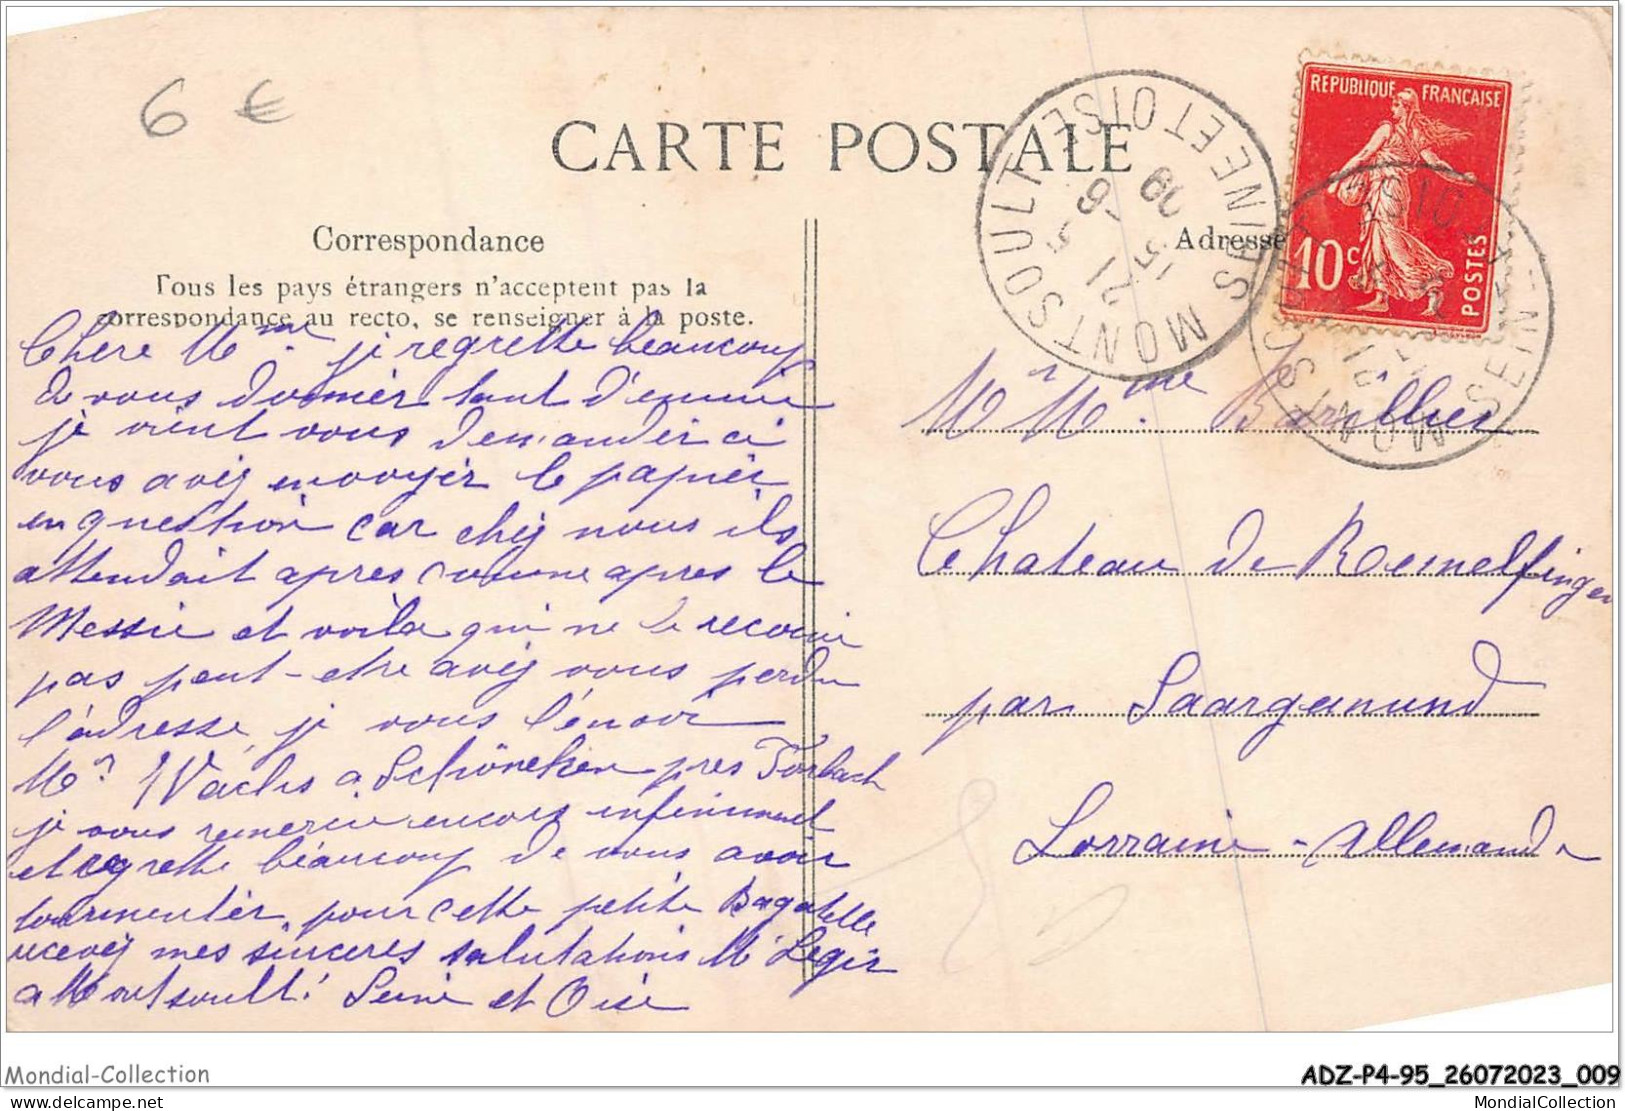 6 €
CARTE POSTALE
Correspondance
Tous les pays étrangers n'acceptent pas la
correspondance au recto, se renseigner à la poste.
Chere Mme. je regrette beaucoup
de vous donnér tant d'ennui
je vient vous demandér ci
vous avéz envoyér le papiér
en question car chéz nous ils
attendait aprés comme apres le
Messie et voila qui ne le recevie
pas peut-etre avéz vous perdu
l'adresse, je vous l'envoie
Mr Wachs a Schönecken pres Forbach
je vous remercie encore infiniment
et regrette beaucoup de vous avoir
tourmentér pour cette petite Bagatelle
recevéz mes sinceres salutations M Legér
a Montsoult! Seine et Oise
REPUBLIQUE FRANÇAISE
10c
POSTES
MONTSOULT SEINE ET OISE
21 -5 09
Adresse
Mr Mme
Chateau de Remelfingen
par Saargemund
Lorraine-Allemande
Mondial-Collection
ADZ-P4-95_26072023_009
www.mondialcollection.com
MondialCollection